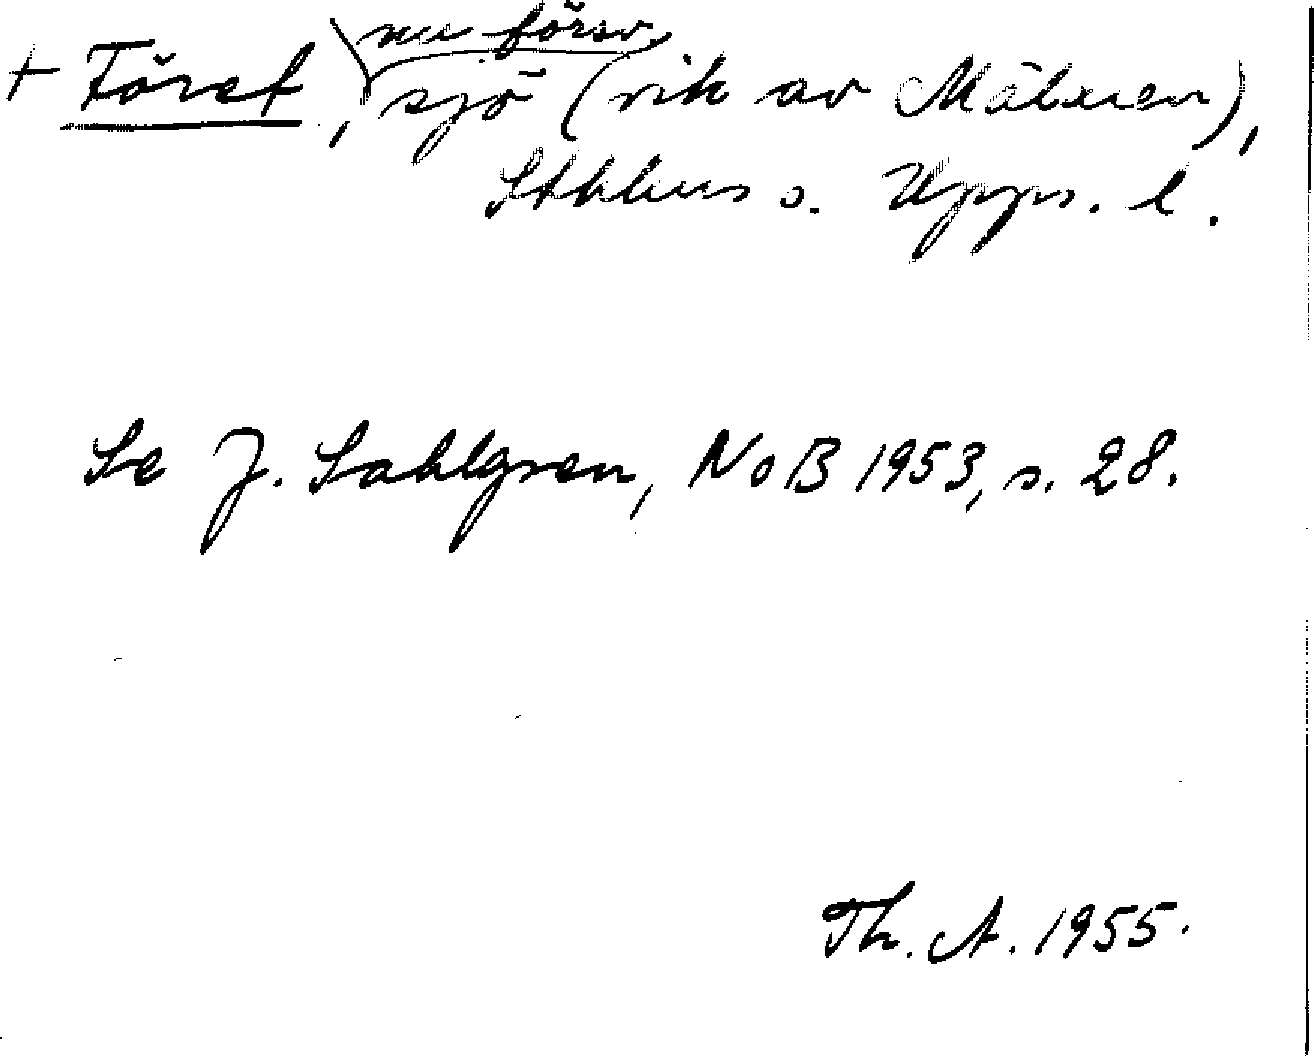 nu försv.
+ Föret, sjö (vik av Mälaren),
Sthlms o. Upps. l.
Se J. Sahlgren, NoB 1953, s. 28.
Th. A. 1955.